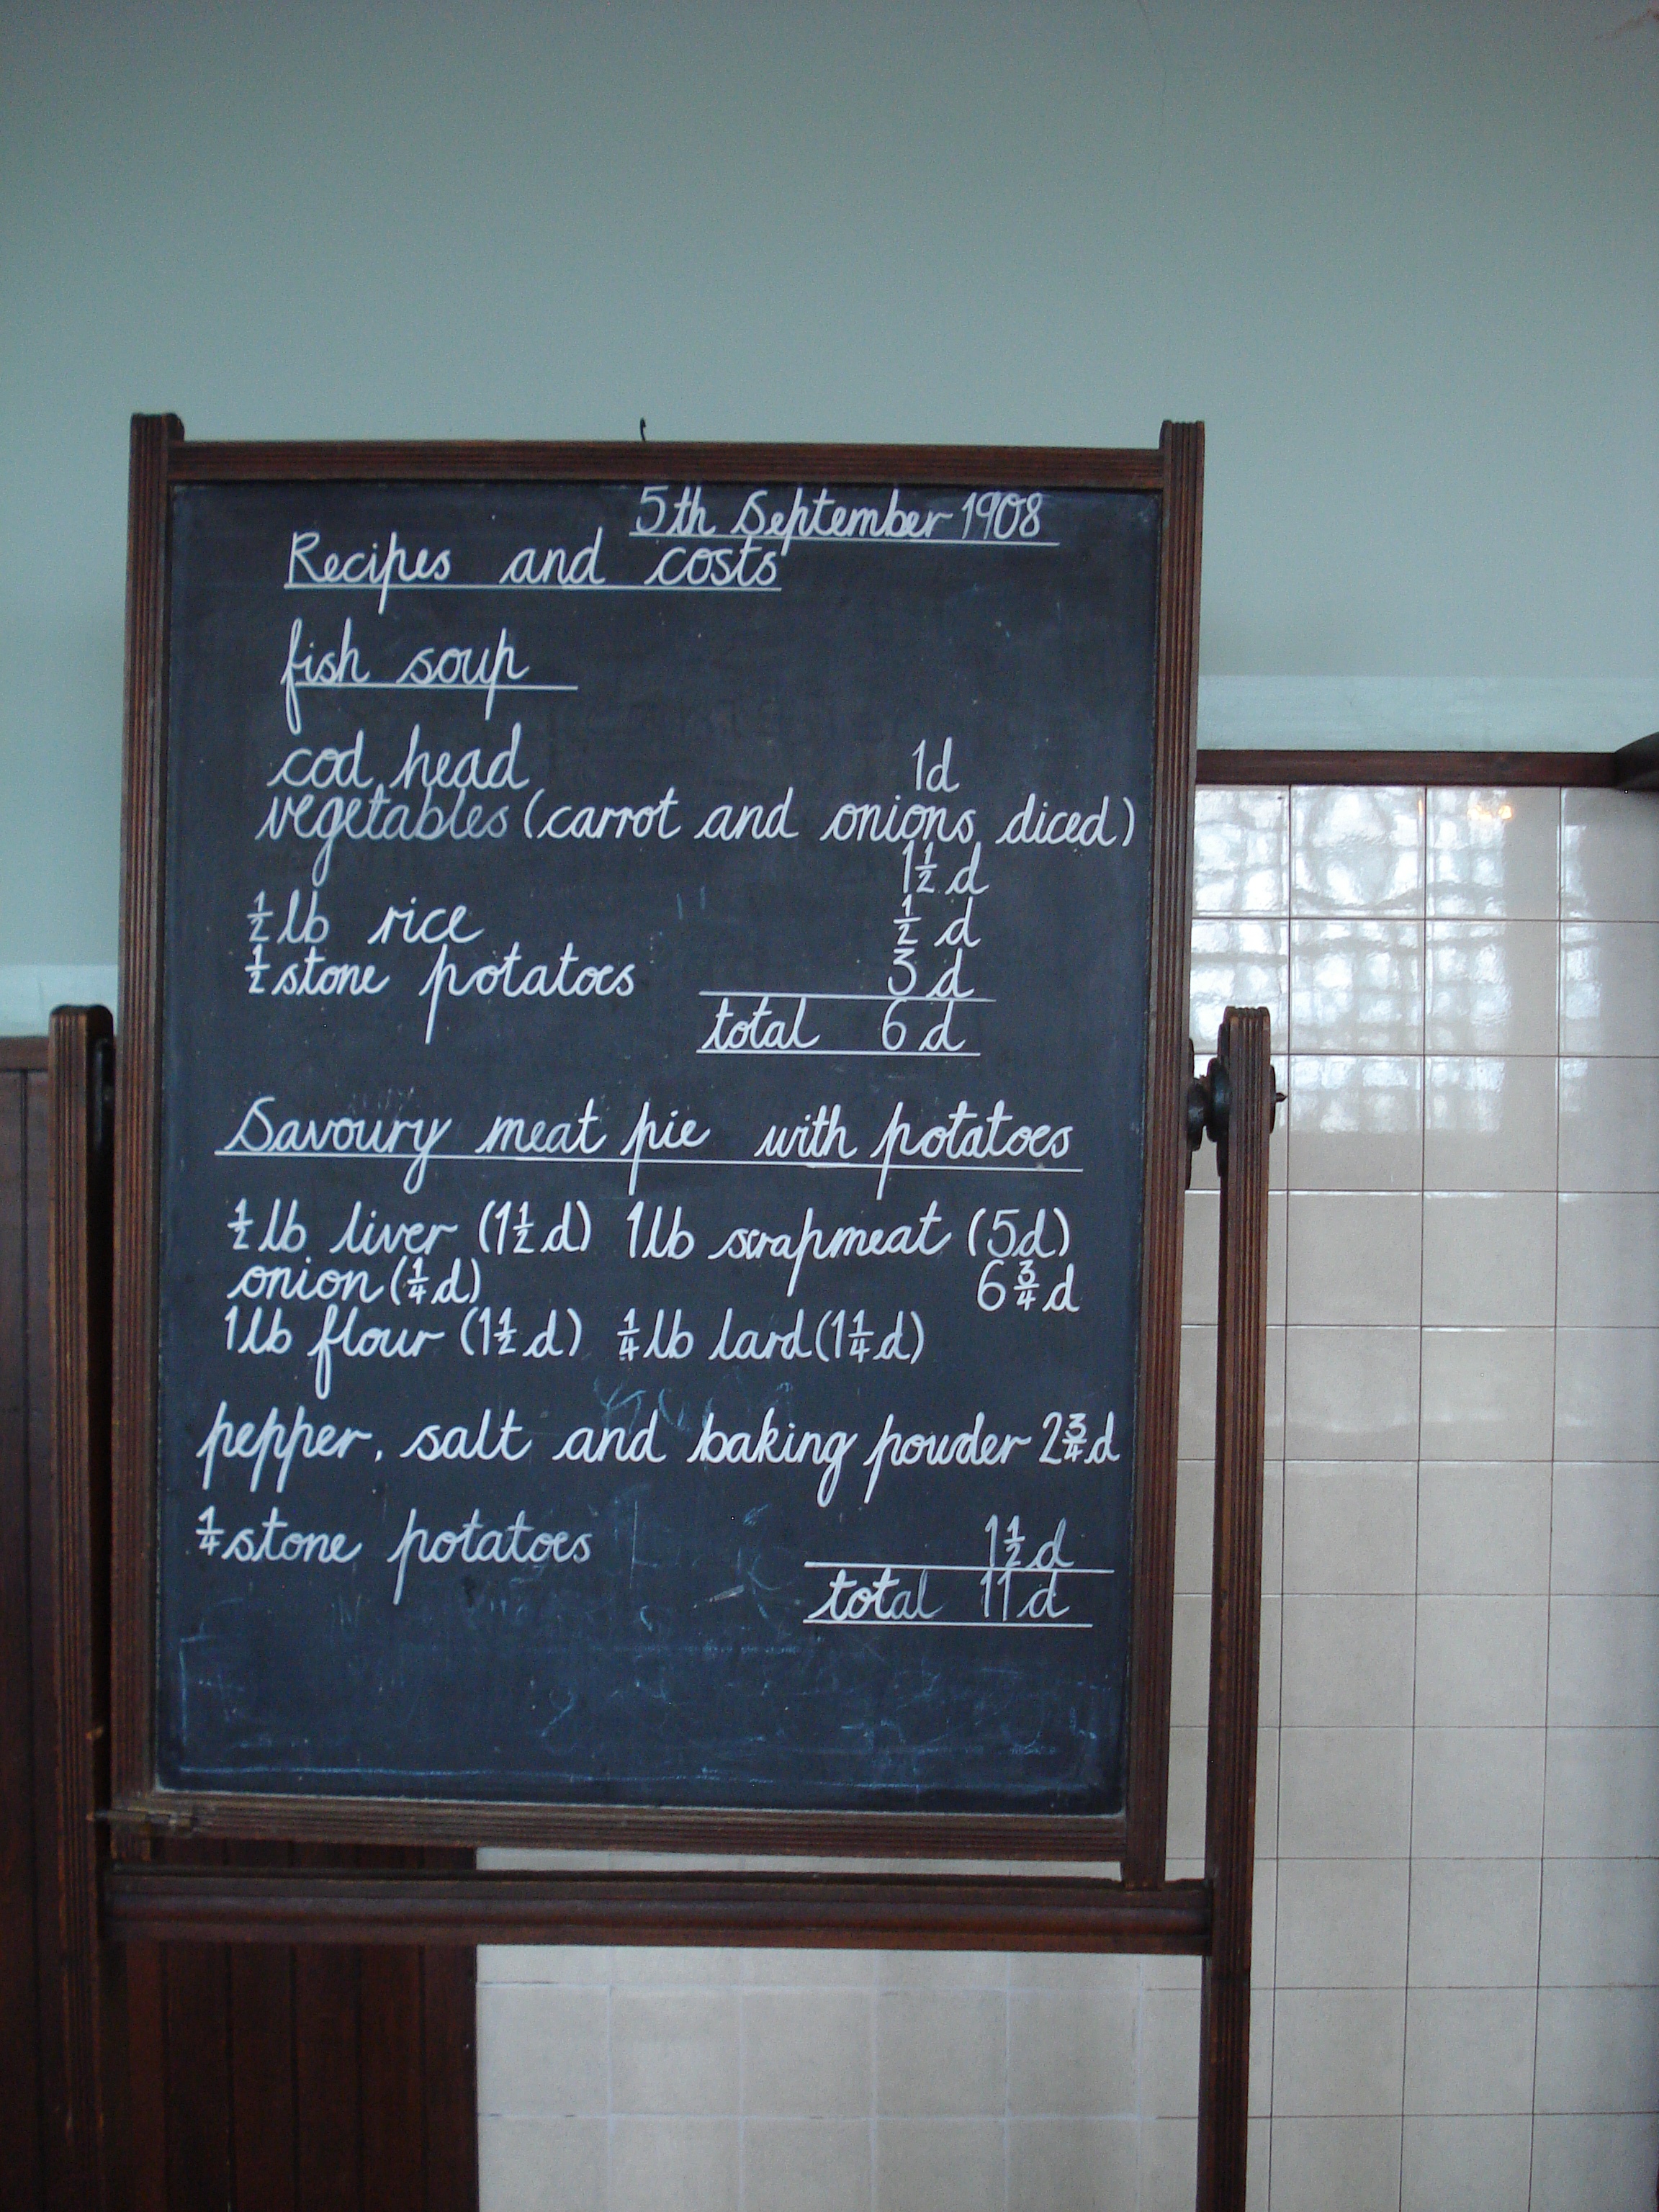 5th September 1908
Recipes and costs
fish soup
cod head 1d
vegetables (carrot and onions diced)
1½ d
½ lb rice ½ d
½ stone potatoes 3 d
total 6 d
Savoury meat pie with potatoes
½ lb liver (1½ d) 1 lb scrapmeat (5d)
onion (¼ d) 6 ¾ d
1 lb flour (1½ d) ¼ lb lard (1¼ d)
pepper, salt and baking powder 2¾ d
¼ stone potatoes 1½ d
total 11 d